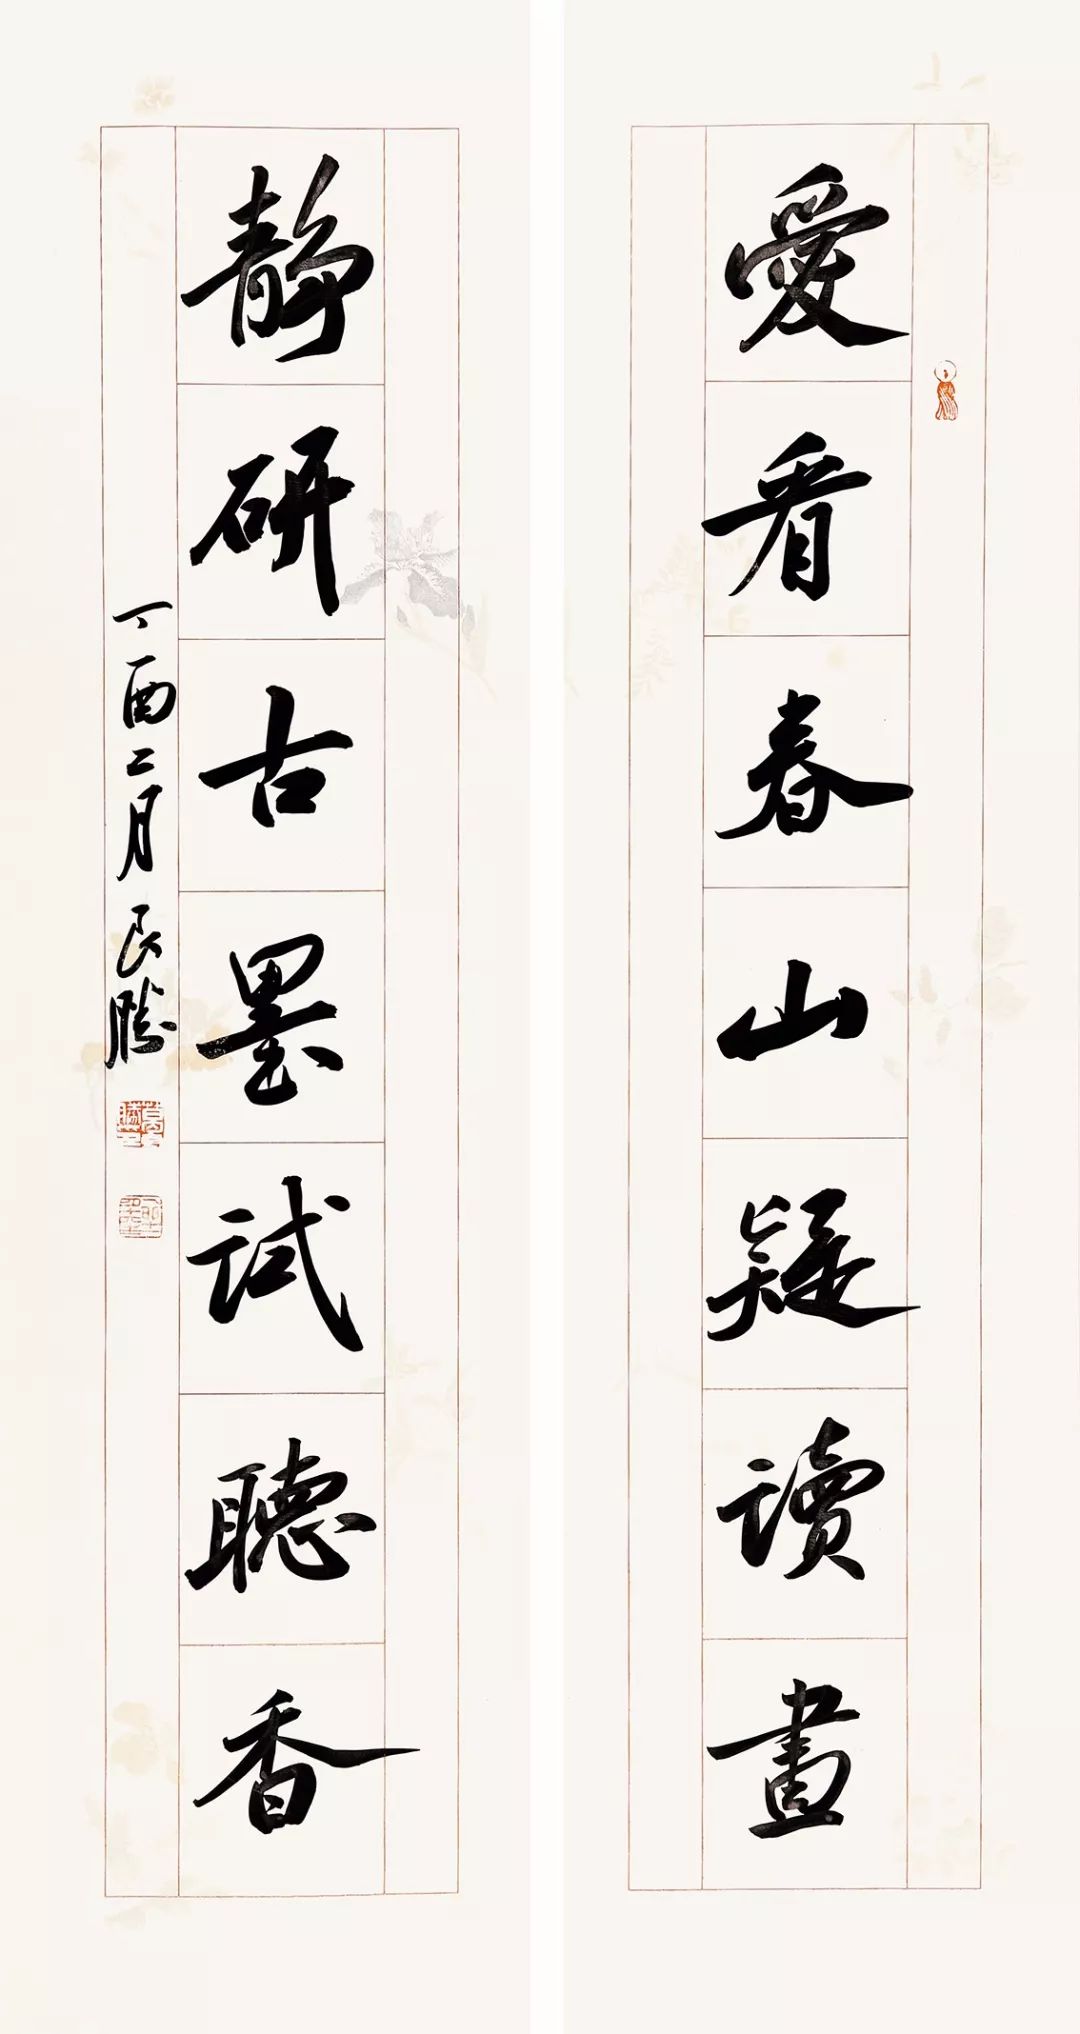 愛看春山疑讀畫
靜研古墨試聽香
丁酉二月良勝